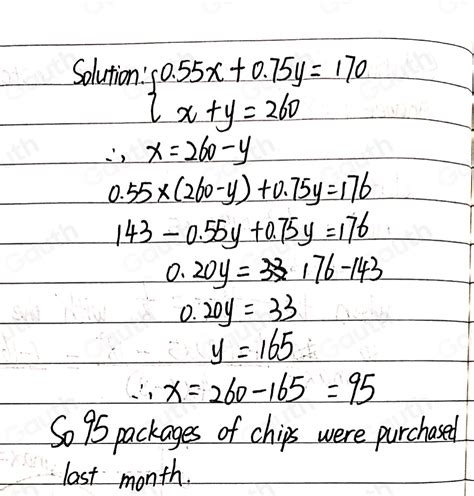 Solution: { 0.55x + 0.75y = 170
x + y = 260
∴ x = 260 - y
0.55 × (260-y) + 0.75y = 176
143 - 0.55y + 0.75y = 176
0.20y = 33 176-143
0.20y = 33
y = 165
∴ x = 260 - 165 = 95
So 95 packages of chips were purchased
last month.